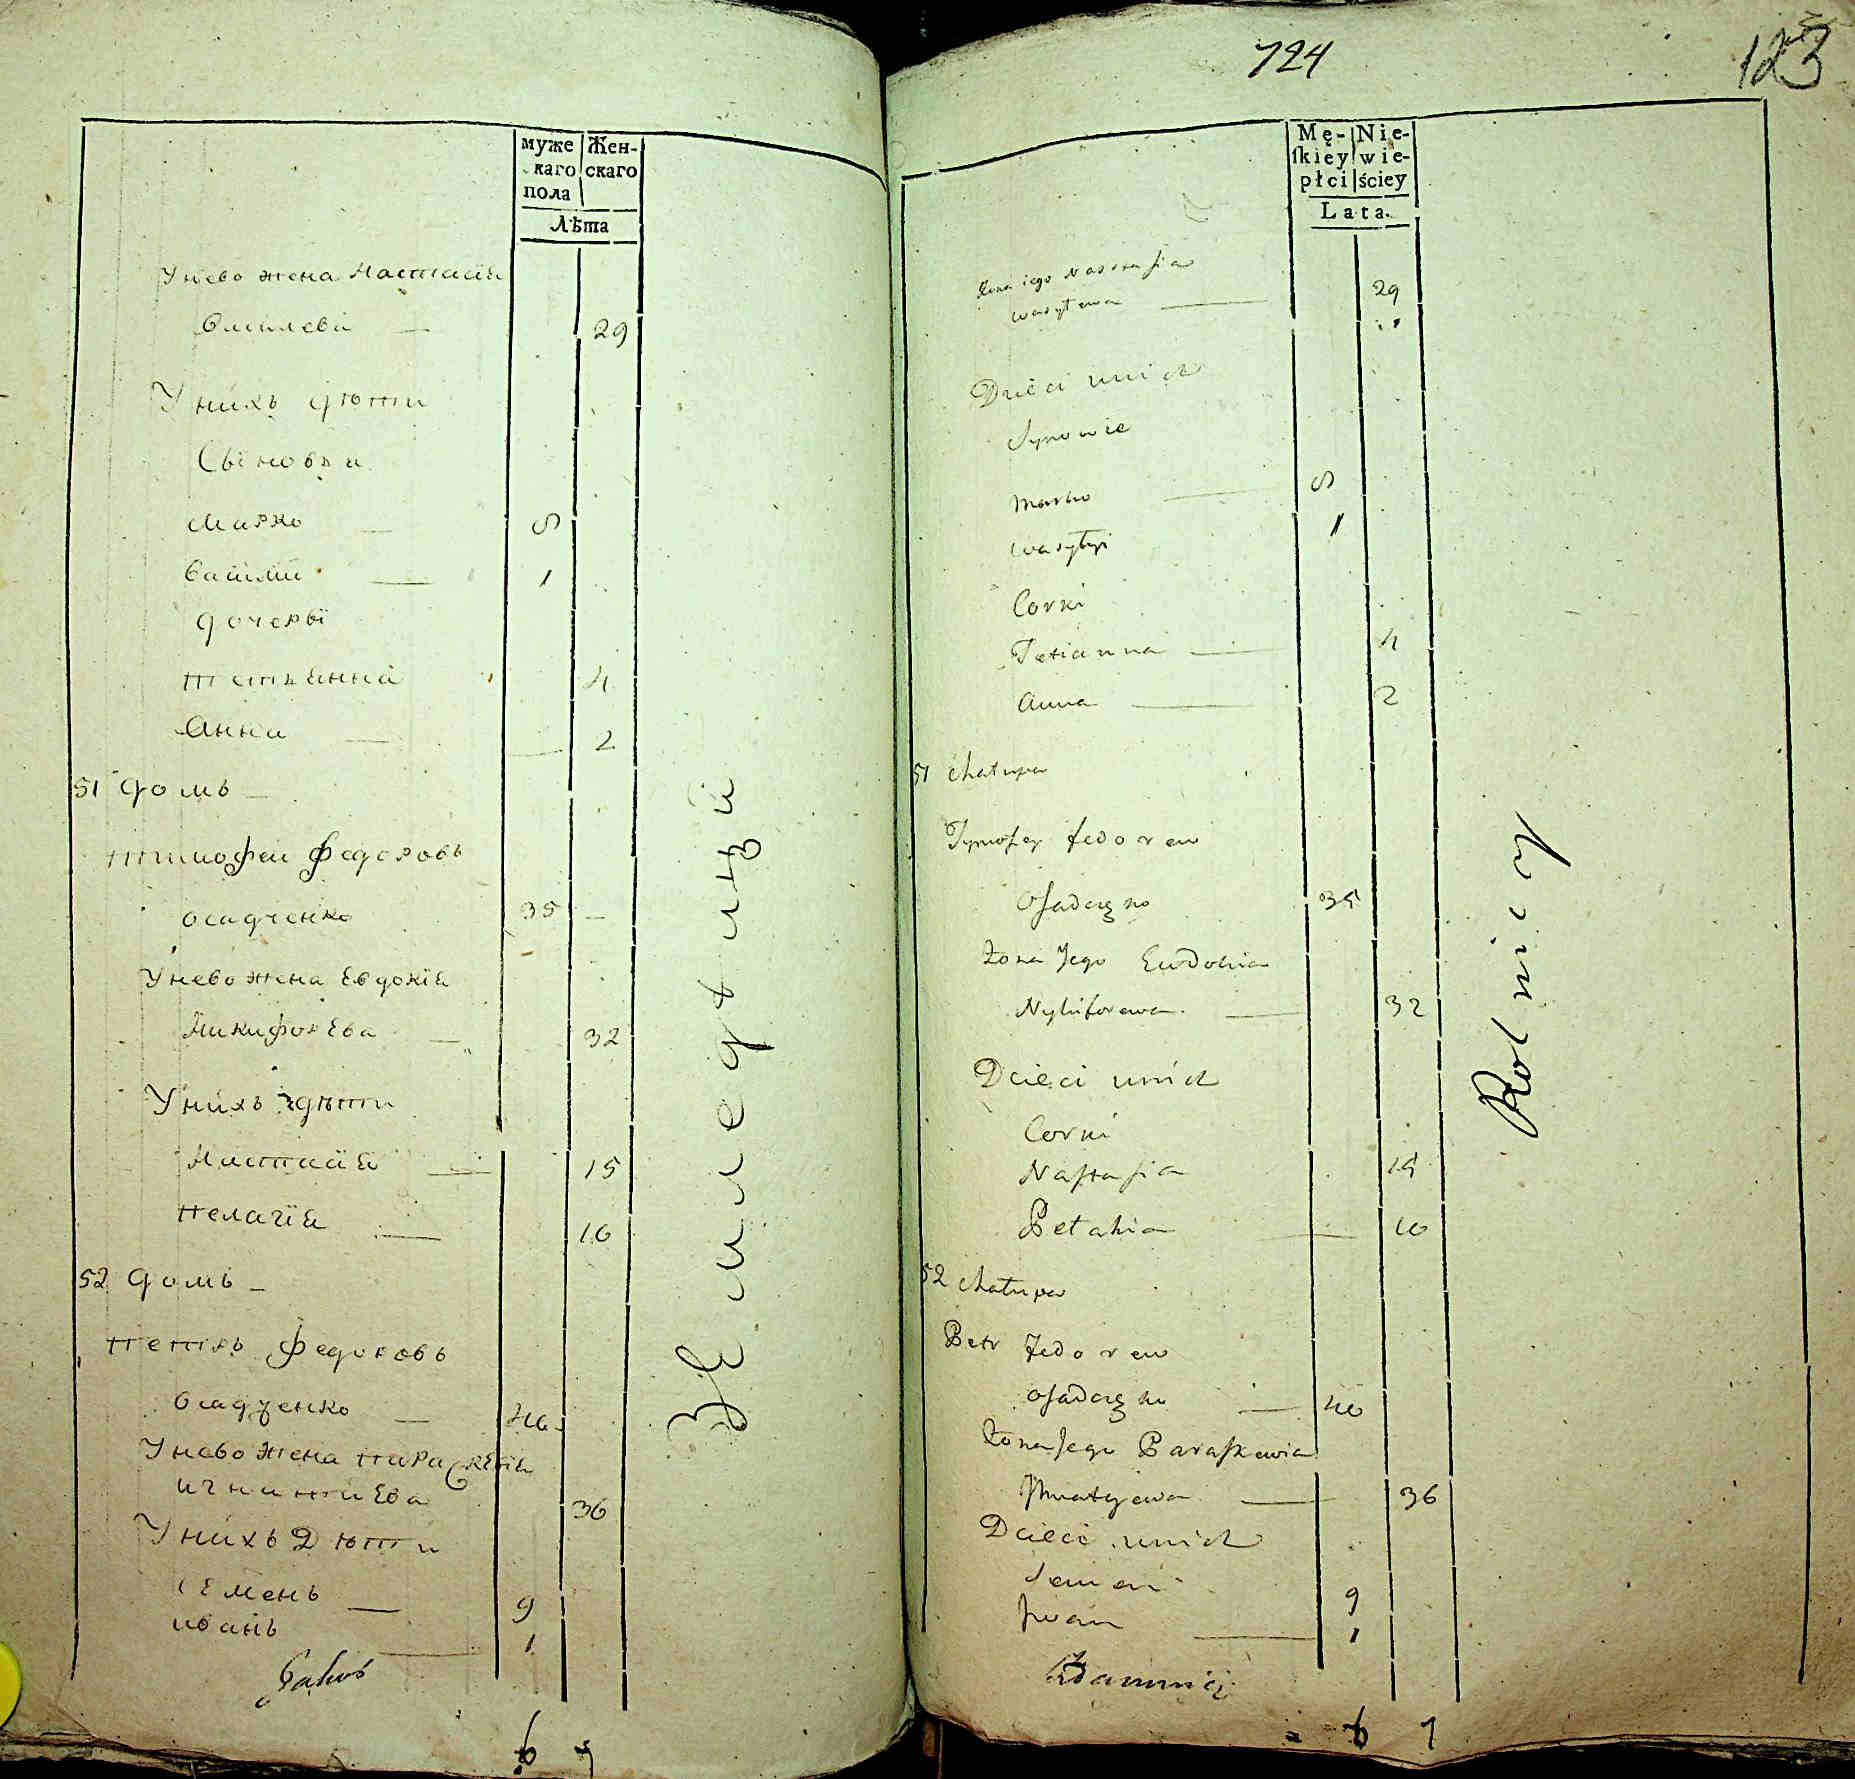 мужс Жен-
каго скаго
пола
Лѣта
У нево жена Настасія
Василева — 29
У нихъ дѣти
Сыновьи
Марко — 5
Василій — 1
дочери
Татіянна 4
Анна — 2
51 домъ —
Тимофей Федоровъ
Осадченко 35 —
У нево жена Евдокія
Никифорева — 32
У нихъ дѣти
Настасія — 15
Пелагія — 10
52 домъ —
Петръ Федоровъ
Осадченко — 40
У нево жена Параскевія
Игнатіева 36
У нихъ Дѣти
Семенъ — 9
Иванъ — 1
6 7
Земледѣлцы
724
123
Mę- Nie-
ſkiey wie-
płci ściey
Lata.
Żona iego Nastasia 29
Wasylewa —
Dzieci unich
Synowie
Marko — 5
Wasylyi 1
Corki
Tatianna — 4
Anna — 2
51 Chałupa
Tymofey Fedorew
Osadczko 35
Żona Jego Ewdokia
Nykiforewa — 32
Dzieci unich
Corki
Nastasia 15
Pelahia — 10
52 Chałupa
Petr Fedorew
Osadczko — 40
Żona Jego Paraskewia
Ihnatyewa — 36
Dzieci unich
Semen 9
Iwan — 1
6 7
Rolnicy